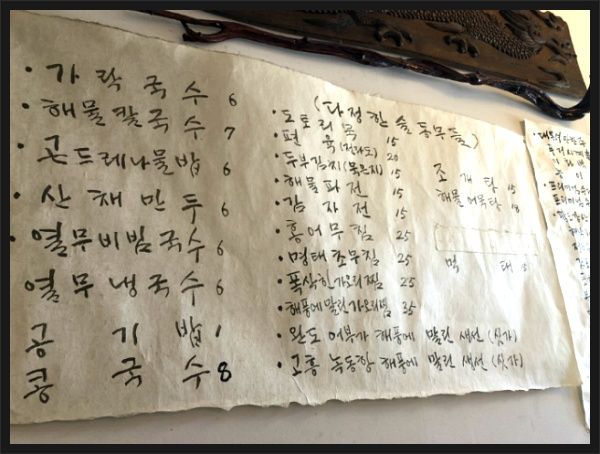 · 가락국수 6
· 해물칼국수 7
· 곤드레나물밥 6
· 산채만두 6
· 열무비빔국수 6
열무냉국수 6
공기밥 1
콩국수 8
(다정한 술 동무들)
· 도토리묵 15
· 편육(전라도) 20
· 두부김치(묵은지) 15
· 해물파전 15
· 감자전 15
· 홍어무침 25
· 명태초무침 25
· 폭삭한가오리찜 25
· 해풍에말린가오리찜 35
· 완도 어부가 해풍에 말린 생선 (싯가)
· 고흥 녹동항 해풍에 말린 생선 (싯가)
조개탕 15
해물어묵탕 18
먹태